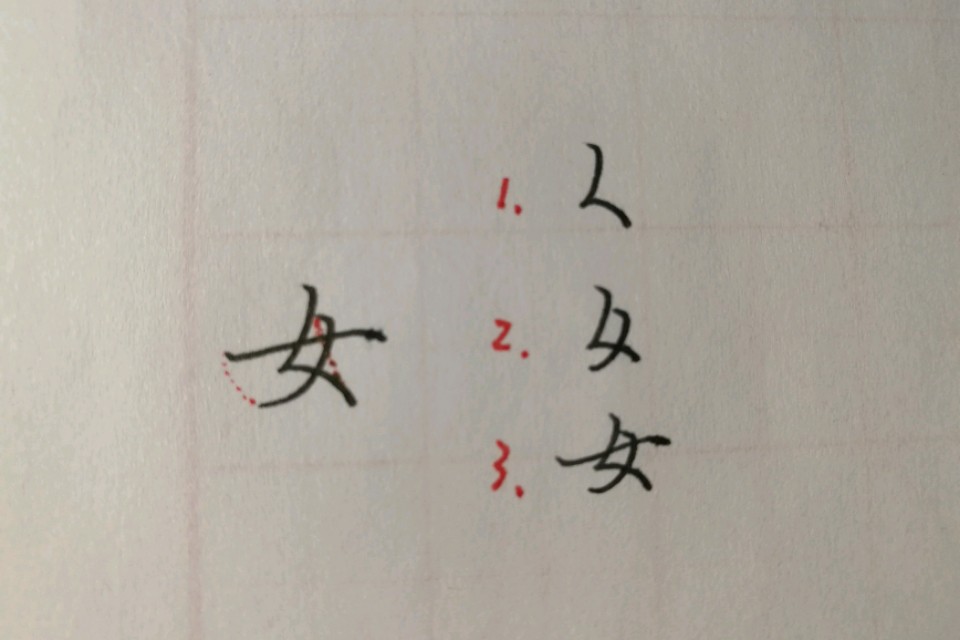 女
1. 𡿨
2. 夂
3. 女